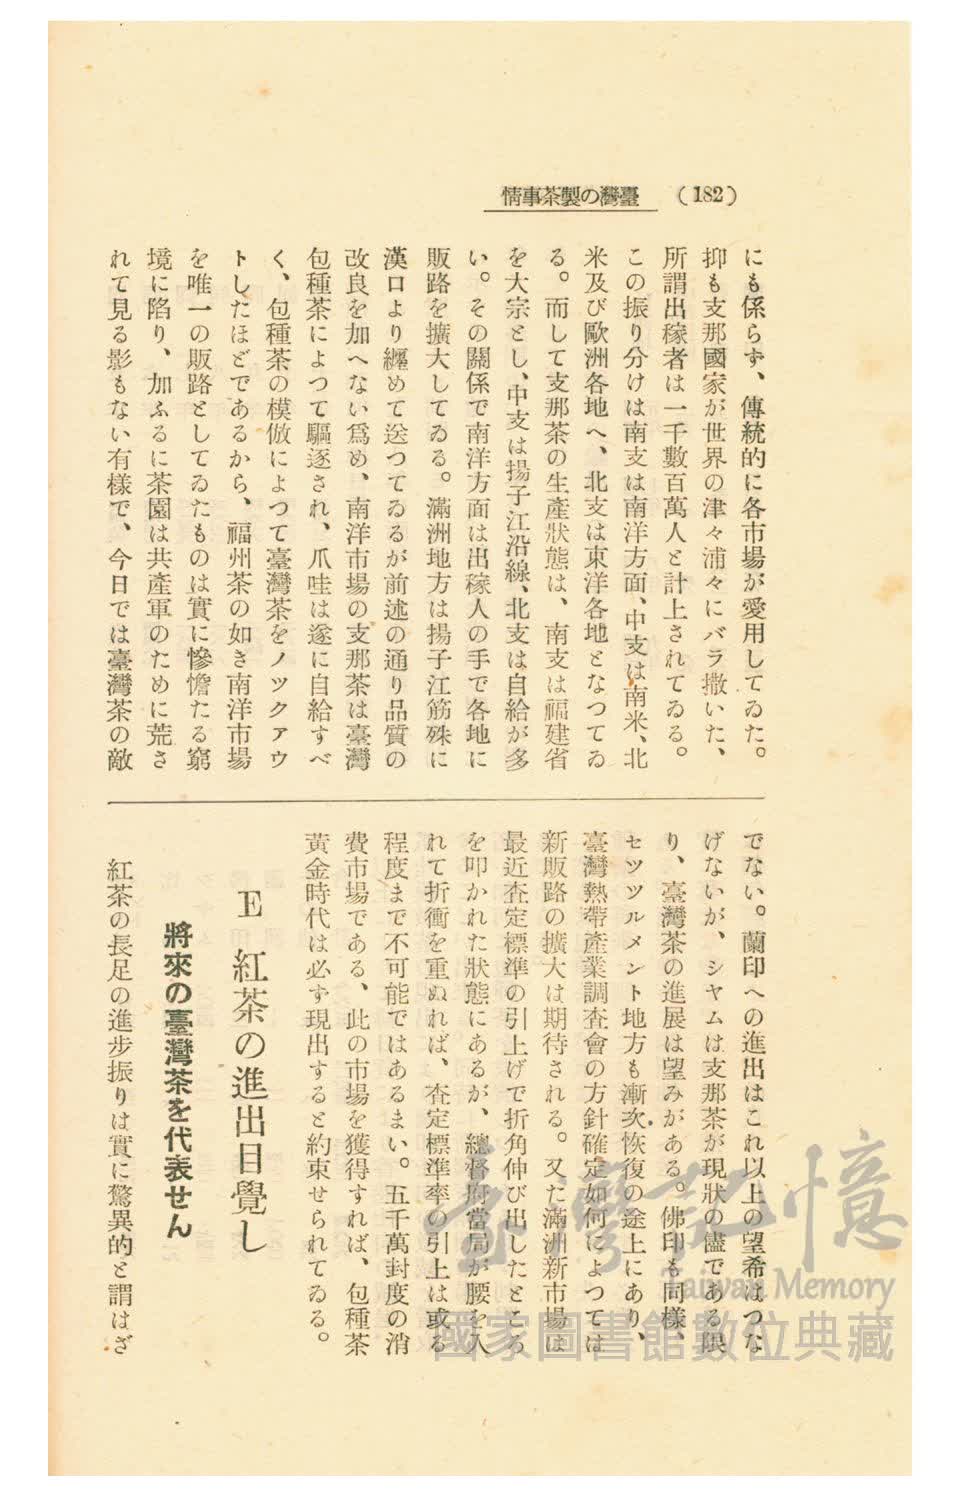 情事茶製の灣臺 (182)
にも係らず、傳統的に各市場が愛用してゐた。
抑も支那國家が世界の津々浦々にバラ撒いた、
所謂出稼者は一千數百萬人と計上されてゐる。
この振り分けは南支は南洋方面、中支は南米、北
米及び歐洲各地へ、北支は東洋各地となつてゐ
る。而して支那茶の生產狀態は、南支は福建省
を大宗とし、中支は揚子江沿線、北支は自給が多
い。その關係で南洋方面は出稼人の手で各地に
販路を擴大してゐる。滿洲地方は揚子江筋殊に
漢口より纏めて送つてゐるが前述の通り品質の
改良を加へない爲め、南洋市場の支那茶は臺灣
包種茶によつて驅逐され、爪哇は遂に自給すべ
く、包種茶の模倣によつて臺灣茶をノツクアウ
トしたほどであるから、福州茶の如き南洋市場
を唯一の販路としてゐたものは實に慘憺たる窮
境に陷り、加ふるに茶園は共產軍のために荒さ
れて見る影もない有樣で、今日では臺灣茶の敵
でない。蘭印への進出はこれ以上の望希はつな
げないが、シヤムは支那茶が現狀の儘である限
り、臺灣茶の進展は望みがある。佛印も同樣、
セツツルメント地方も漸次恢復の途上にあり、
臺灣熱帶產業調査會の方針確定如何によつては
新販路の擴大は期待される。又た滿洲新市場は
最近査定標準の引上げで折角伸び出したところ
を叩かれた狀態にあるが、總督府當局が腰を入
れて折衝を重ぬれば、査定標準率の引上は或る
程度まで不可能ではあるまい。五千萬封度の消
費市場である、此の市場を獲得すれば、包種茶
黃金時代は必ず現出すると約束せられてゐる。
E 紅茶の進出目覺し
將來の臺灣茶を代表せん
紅茶の長足の進步振りは實に驚異的と謂はざ
臺灣記憶
Taiwan Memory
國家圖書館數位典藏